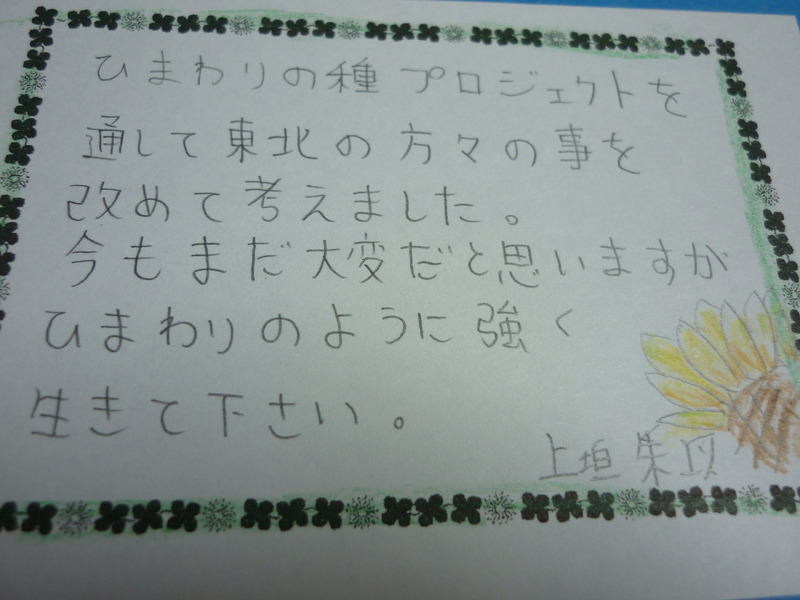 ひまわりの種プロジェクトを
通して東北の方々の事を
改めて考えました。
今もまだ大変だと思いますが
ひまわりのように強く
生きて下さい。
上垣朱以